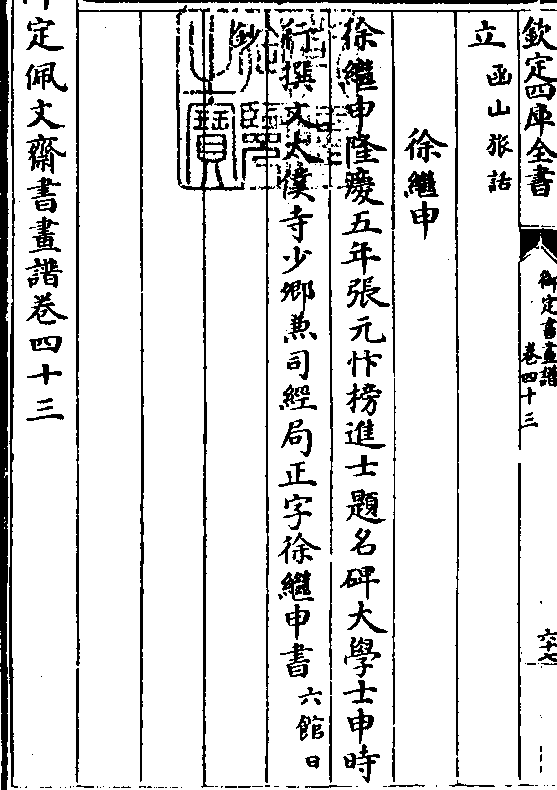 欽定四庫全書
御定書畫譜
卷四十三
六十七
立函山旅話
徐繼申
徐繼申隆慶五年張元忭榜進士題名碑大學士申時
行撰文太僕寺少卿兼司經局正字徐繼申書六館日
鈔
定佩文齋書畫譜卷四十三